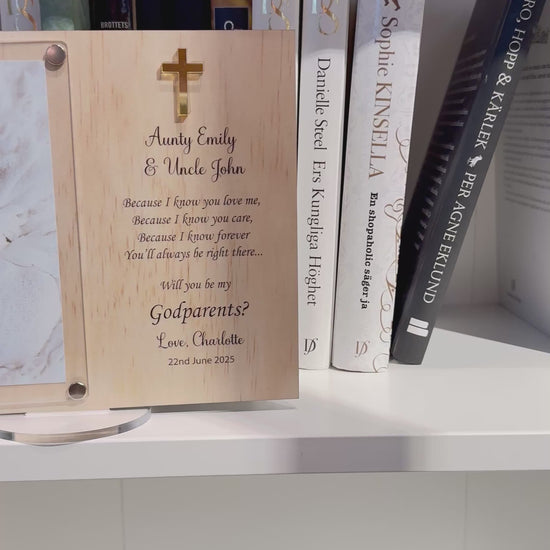 Aunty Emily
& Uncle John
Because I know you love me,
Because I know you care,
Because I know forever
You'll always be right there...
Will you be my
Godparents?
Love, Charlotte
22nd June 2025
BROTTETS
Danielle Steel Ers Kungliga Höghet
Sophie KINSELLA En shopaholic säger ja
RO, HOPP & KÄRLEK PER AGNE EKLUND